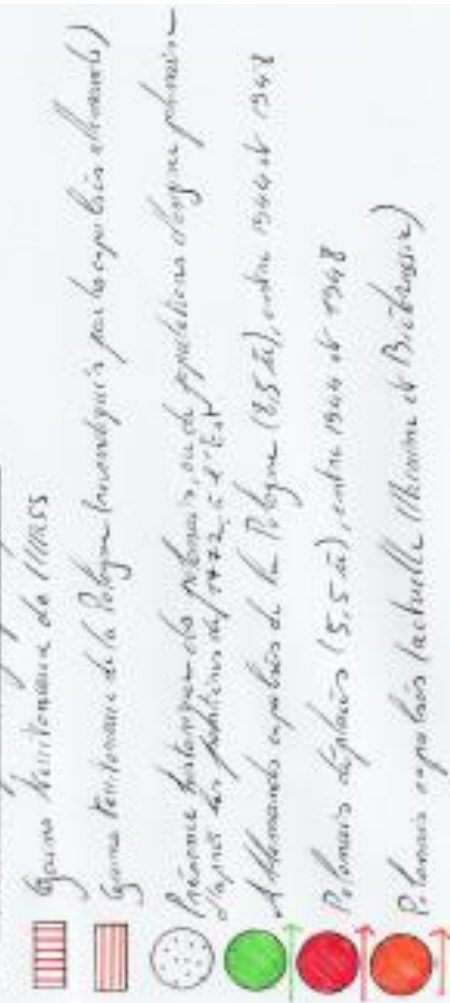 Gains territoriaux de l'URSS
Gains territoriaux de la Pologne (revendiqués par les expulsés allemands)
Présence historique des polonais, ou de populations d'origine polonaise
d'après les frontières de 1772, à l'Est
Allemands expulsés de la Pologne (8,5 ), entre 1944 et 1948
Polonais déplacés (5,5 ), entre 1944 et 1948
Polonais expulsés (actuelle Ukraine et Biélorussie)